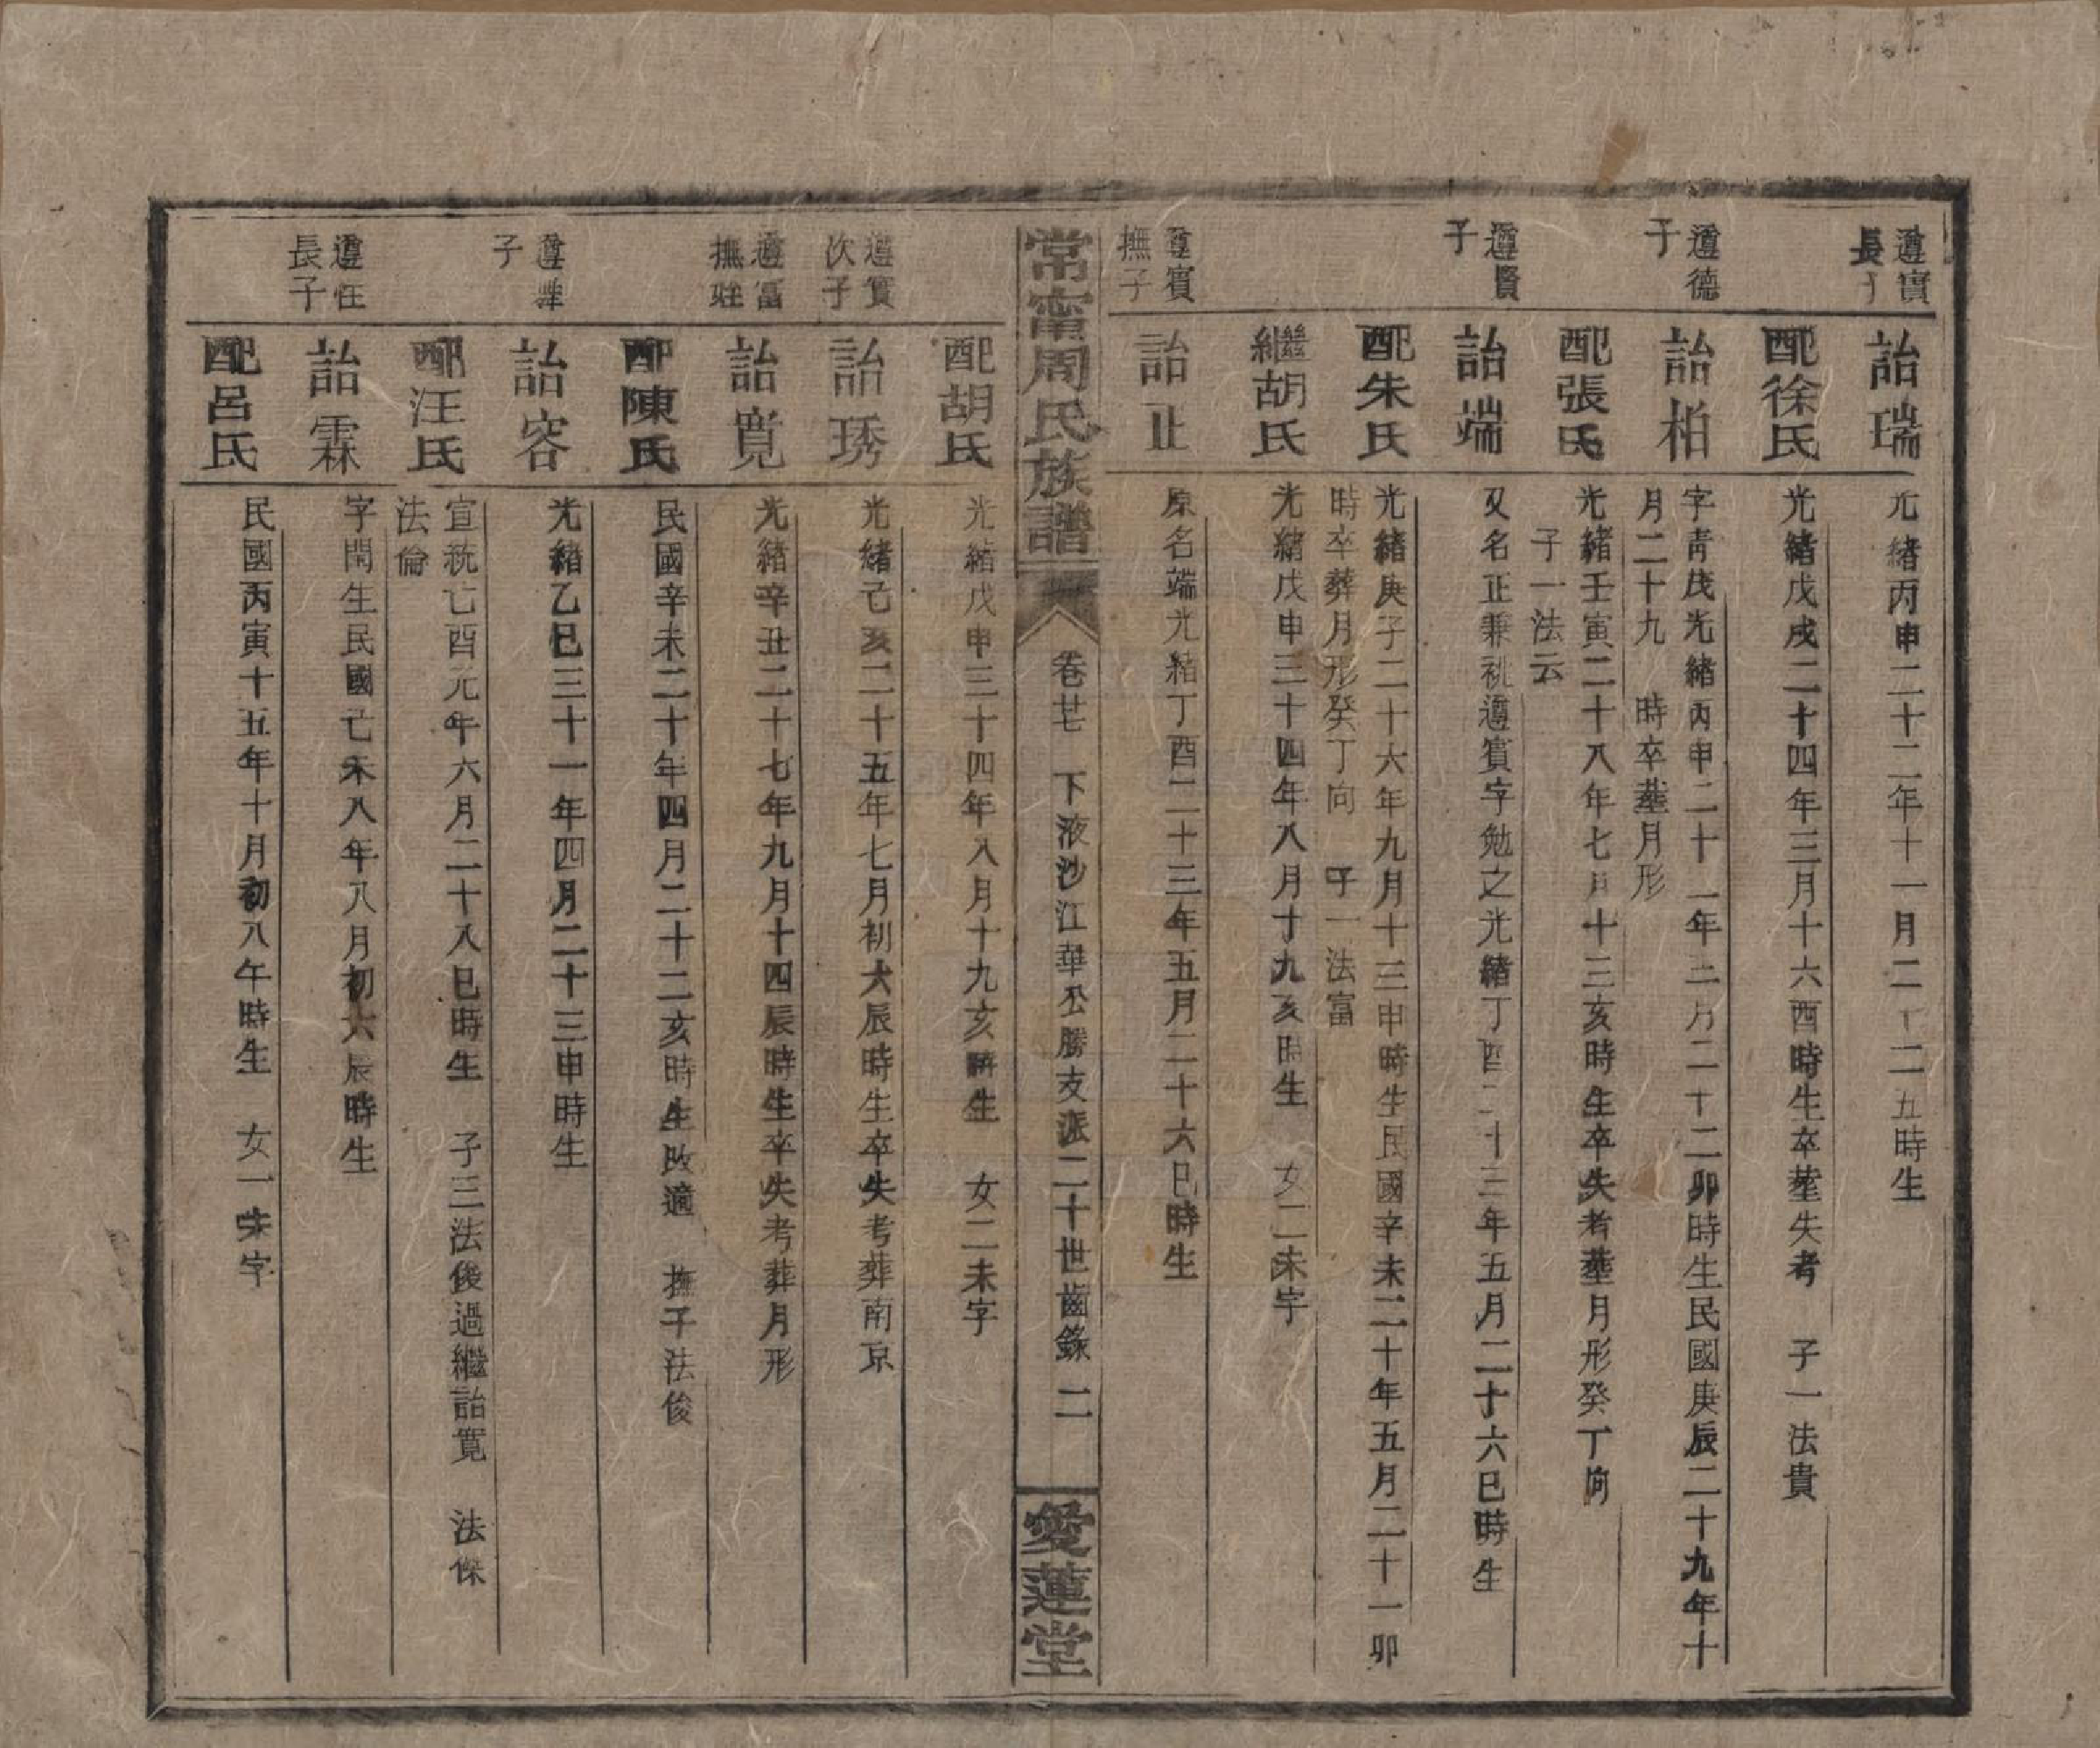 遵實長子
詒瑞
光緒丙申二十二年十一月二十二五時生
配徐氏
光緒戊戌二十四年三月十六酉時生卒塟失考 子一法貴
遵德子
詒柏
字青茂光緒丙申二十二年二月二十二卯時生民國庚辰二十九年十
月二十九 時卒塟月形
配張氏
光緒壬寅二十八年七月十三亥時生卒失考塟月形癸丁向
子一法云
遵賢子
詒端
又名正兼祧遵賓字勉之光緒丁酉二十三年五月二十六巳時生
配朱氏
光緒庚子二十六年九月十三申時生民國辛未二十年五月二十一卯
時卒葬月形癸丁向 子一法富
繼胡氏
光緒戊申三十四年八月十九亥時生 女二未字
遵賓撫子
詒正
原名端光緒丁酉二十三年五月二十六巳時生
常甯周氏族譜
卷廿 下液沙江華公勝支派二十世齒錄 二
愛蓮堂
配胡氏
光緒戊申三十四年八月十九亥時生 女二未字
遵實次子
詒琇
光緒己亥二十五年七月初六辰時生卒失考葬南京
遵富撫
詒寬
光緒辛丑二十七年九月十四辰時生卒失考葬月形
配陳氏
民國辛未二十年四月二十二亥時生改適 撫子法俊
遵 子
詒容
光緒乙巳三十一年四月二十三申時生
配汪氏
宣統己酉元年六月二十八巳時生 子三法俊過繼詒寬 法傑
法倫
遵任長子
詒霖
字閏生民國己未八年八月初六辰時生
配呂氏
民國丙寅十五年十月初八午時生 女一未字